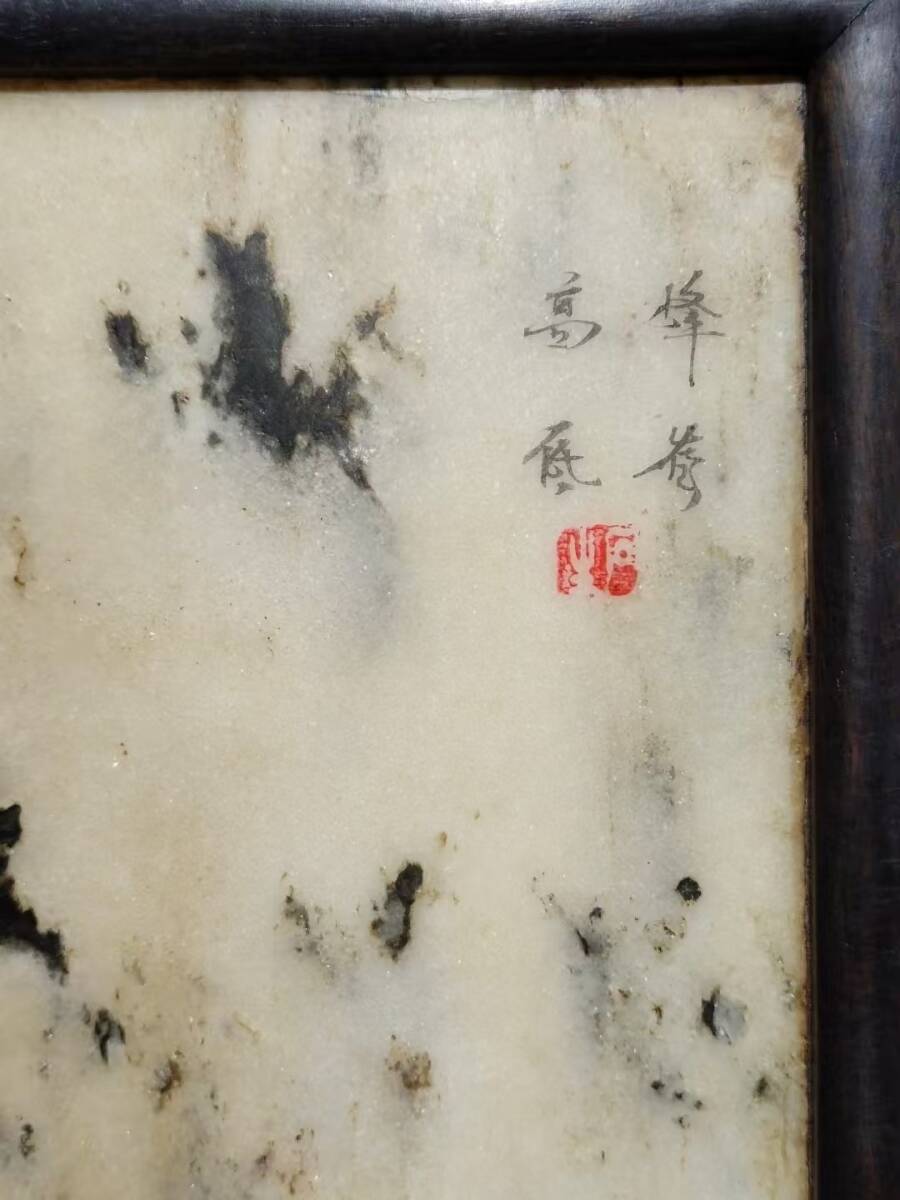 峰巒
高低